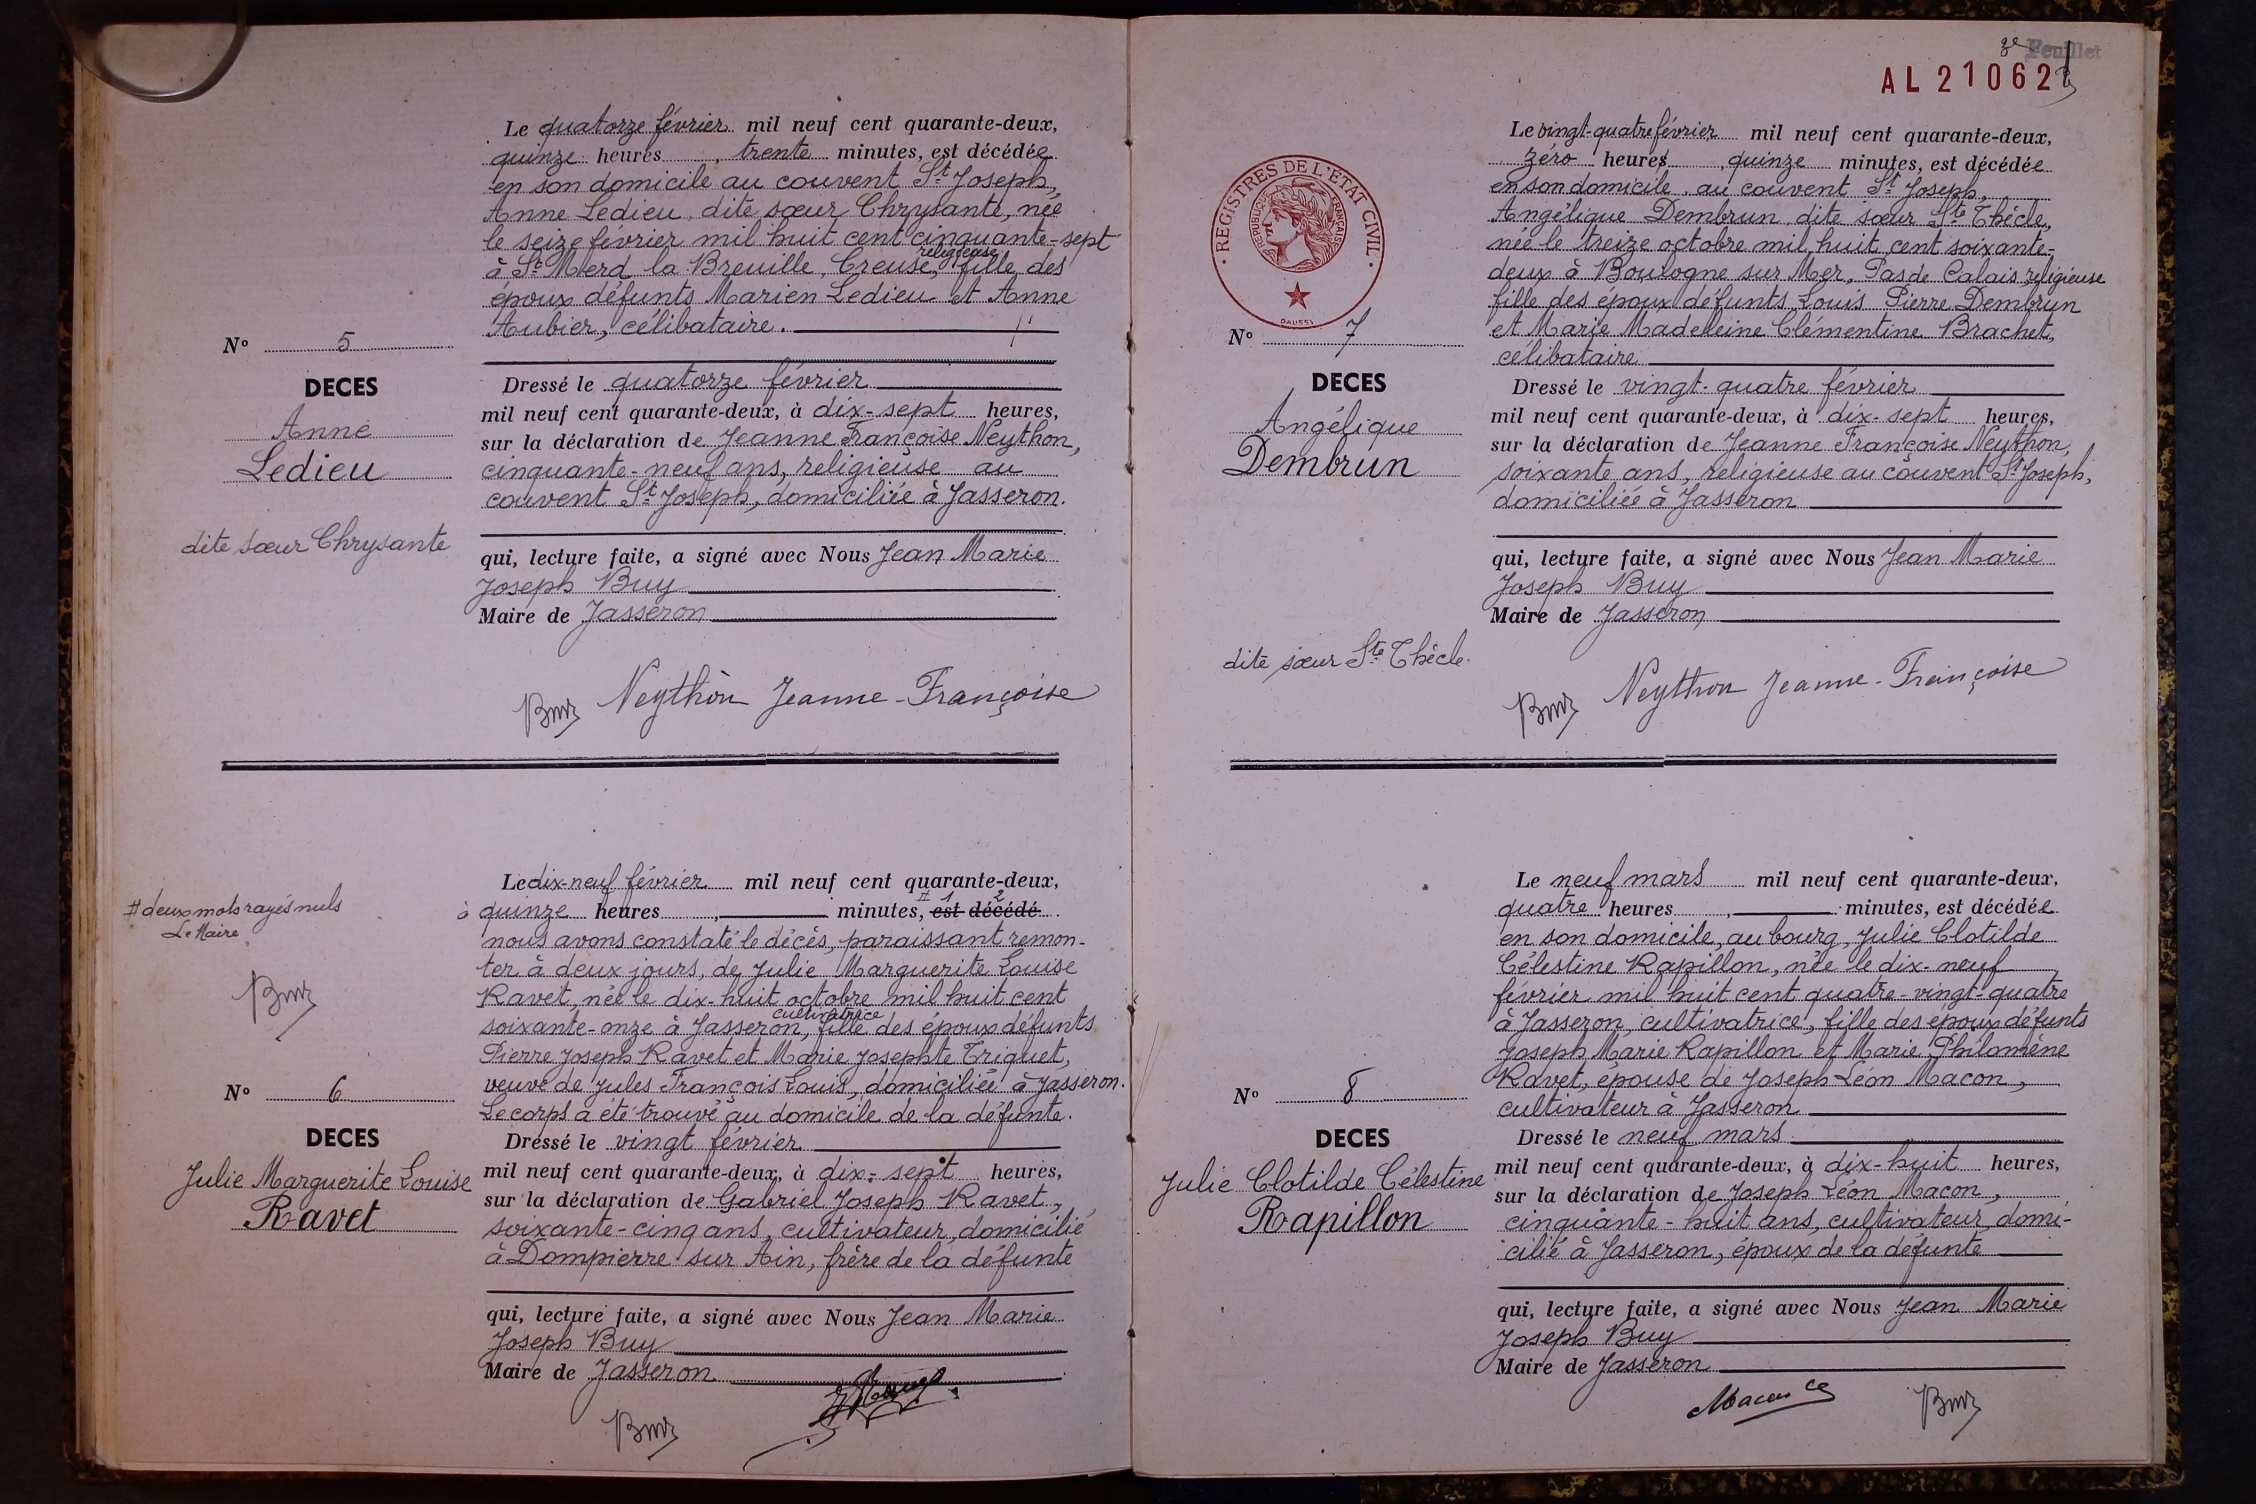 Le quatorze février mil neuf cent quarante-deux,
quinze heures, trente minutes, est décédée
en son domicile au couvent St Joseph,
Anne Ledieu, dite sœur Chrysante, née
le seize février mil huit cent cinquante-sept
religieuse
à St Merd la Breuille, Creuse, fille des
époux défunts Marien Ledieu et Anne
Aubier, célibataire.
N° 5
DECES
Anne
Ledieu
dite sœur Chrysante
Dressé le quatorze février
mil neuf cent quarante-deux, à dix-sept heures,
sur la déclaration de Jeanne Françoise Neython,
cinquante-neuf ans, religieuse au
couvent St Joseph, domiciliée à Jasseron.
qui, lecture faite, a signé avec Nous Jean Marie
Joseph Buy
Maire de Jasseron
Buy Neython Jeanne-Françoise
Le dix-neuf février mil neuf cent quarante-deux,
# 1 2
à quinze heures, minutes, est décédé
# deux mots rayés nuls
Le Maire
Buy
nous avons constaté le décès, paraissant remon-
ter à deux jours, de Julie Marguerite Louise
Ravet, née le dix-huit octobre mil huit cent
cultivatrice
soixante-onze à Jasseron, fille des époux défunts
Pierre Joseph Ravet et Marie Josephte Triquet,
veuve de Jules François Louis, domiciliée à Jasseron.
Le corps a été trouvé au domicile de la défunte.
N° 6
DECES
Julie Marguerite Louise
Ravet
Dressé le vingt février
mil neuf cent quarante-deux, à dix-sept heures,
sur la déclaration de Gabriel Joseph Ravet,
soixante-cinq ans, cultivateur, domicilié
à Dompierre sur Ain, frère de la défunte
qui, lecture faite, a signé avec Nous Jean Marie
Joseph Buy
Maire de Jasseron
Buy
Feuillet
AL 21062
REGISTRES DE L'ETAT CIVIL
REPUBLIQUE FRANÇAISE
DAUSSI
Le vingt-quatre février mil neuf cent quarante-deux,
zéro heures, quinze minutes, est décédée
en son domicile, au couvent St Joseph,
Angélique Dembrun, dite sœur Ste Thècle,
née le treize octobre mil huit cent soixante-
deux à Boulogne sur Mer, Pas de Calais, religieuse
fille des époux défunts Louis Pierre Dembrun
et Marie Madeleine Clémentine Brachet,
célibataire
N° 7
DECES
Angélique
Dembrun
dite sœur Ste Thècle.
Dressé le vingt-quatre février
mil neuf cent quarante-deux, à dix-sept heures,
sur la déclaration de Jeanne Françoise Neython,
soixante ans, religieuse au couvent St Joseph,
domiciliée à Jasseron
qui, lecture faite, a signé avec Nous Jean Marie
Joseph Buy
Maire de Jasseron
Buy Neython Jeanne-Françoise
Le neuf mars mil neuf cent quarante-deux,
quatre heures, minutes, est décédée
en son domicile, au bourg, Julie Clotilde
Célestine Rapillon, née le dix-neuf
février mil huit cent quatre-vingt-quatre
à Jasseron, cultivatrice, fille des époux défunts
Joseph Marie Rapillon et Marie Philomène
Ravet, épouse de Joseph Léon Macon,
cultivateur à Jasseron
N° 8
DECES
Julie Clotilde Célestine
Rapillon
Dressé le neuf mars
mil neuf cent quarante-deux, à dix-huit heures,
sur la déclaration de Joseph Léon Macon,
cinquante-huit ans, cultivateur, domi-
cilié à Jasseron, époux de la défunte
qui, lecture faite, a signé avec Nous Jean Marie
Joseph Buy
Maire de Jasseron
Macon Buy